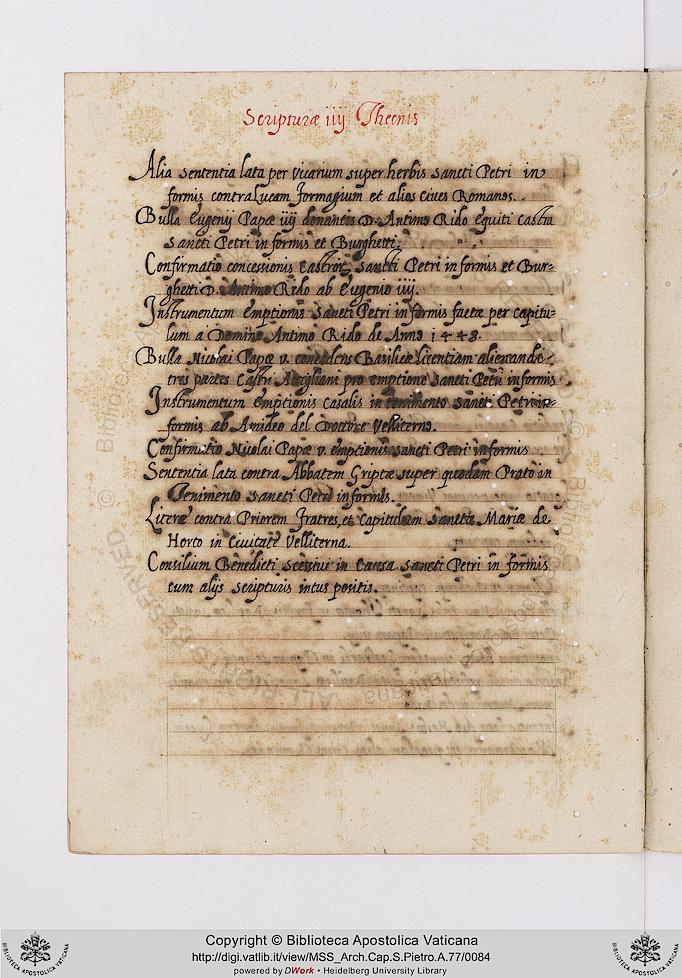 Scripturæ iiij Thecnis
Alia sententia lata per Vicarium super herbis Sancti Petri in
formis contra Lucam Formagium et alios Cives Romanos.
Bulla Eugenij Papæ iiij donantis D. Antimo Rido Equiti Castra
Sancti Petri in formis et Burghetti.
Confirmatio concessionis Castror. Sancti Petri in formis et Bur-
ghetti D. Antimo Rido ab Eugenio iiij.
Instrumentum Emptionis Sancti Petri in formis factæ per capitu-
lum a Domino Antimo Rido de Anno 1448.
Bulla Nicolai Papæ v. concedens Basilicæ licentiam alienandi
tres partes Castri pro emptione Sancti Petri in formis
Instrumentum Emptionis Casalis in tenimento Sancti Petri in
formis ab Amideo del Dottore Velliterno.
Confirmatio Nicolai Papæ v. emptionis Sancti Petri in formis
Sententia lata contra Abbatem Griptæ super quodam Prato in
Tenimento Sancti Petri in formis.
Literæ contra Priorem Fratres, et Capitulum Sanctæ Mariæ de
Horto in Civitate Velliterna.
Consilium Benedicti in Causa Sancti Petri in formis
cum alijs scripturis intus positis.
Copyright © Biblioteca Apostolica Vaticana
http://digi.vatlib.it/view/MSS_Arch.Cap.S.Pietro.A.77/0084
powered by DWork • Heidelberg University Library